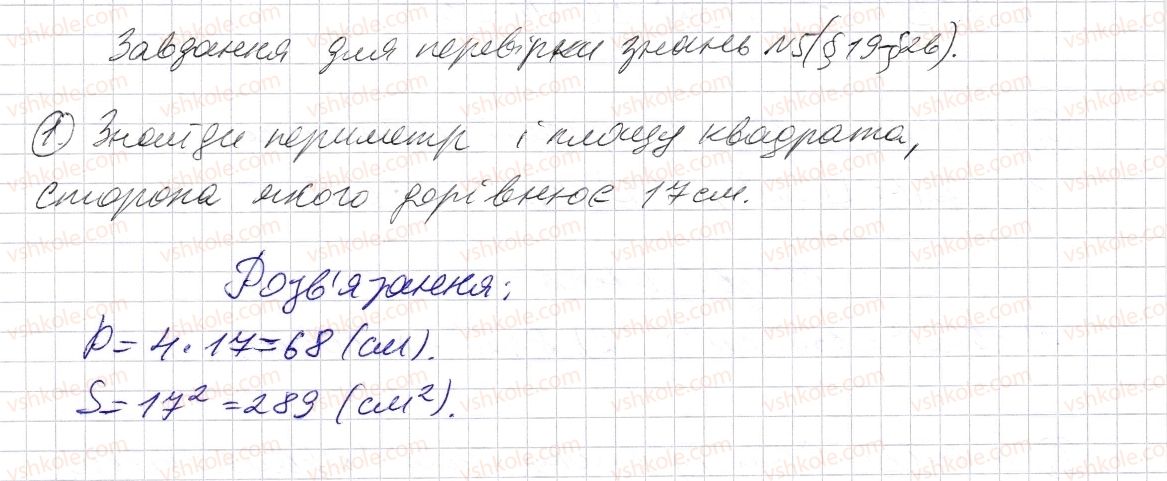 Завдання для перевірки знань №5(§19-§26).
1) Знайди периметр і площу квадрата,
сторона якого дорівнює 17 см.
Розв'язання:
P = 4 · 17 = 68 (см).
S = 17² = 289 (см²).